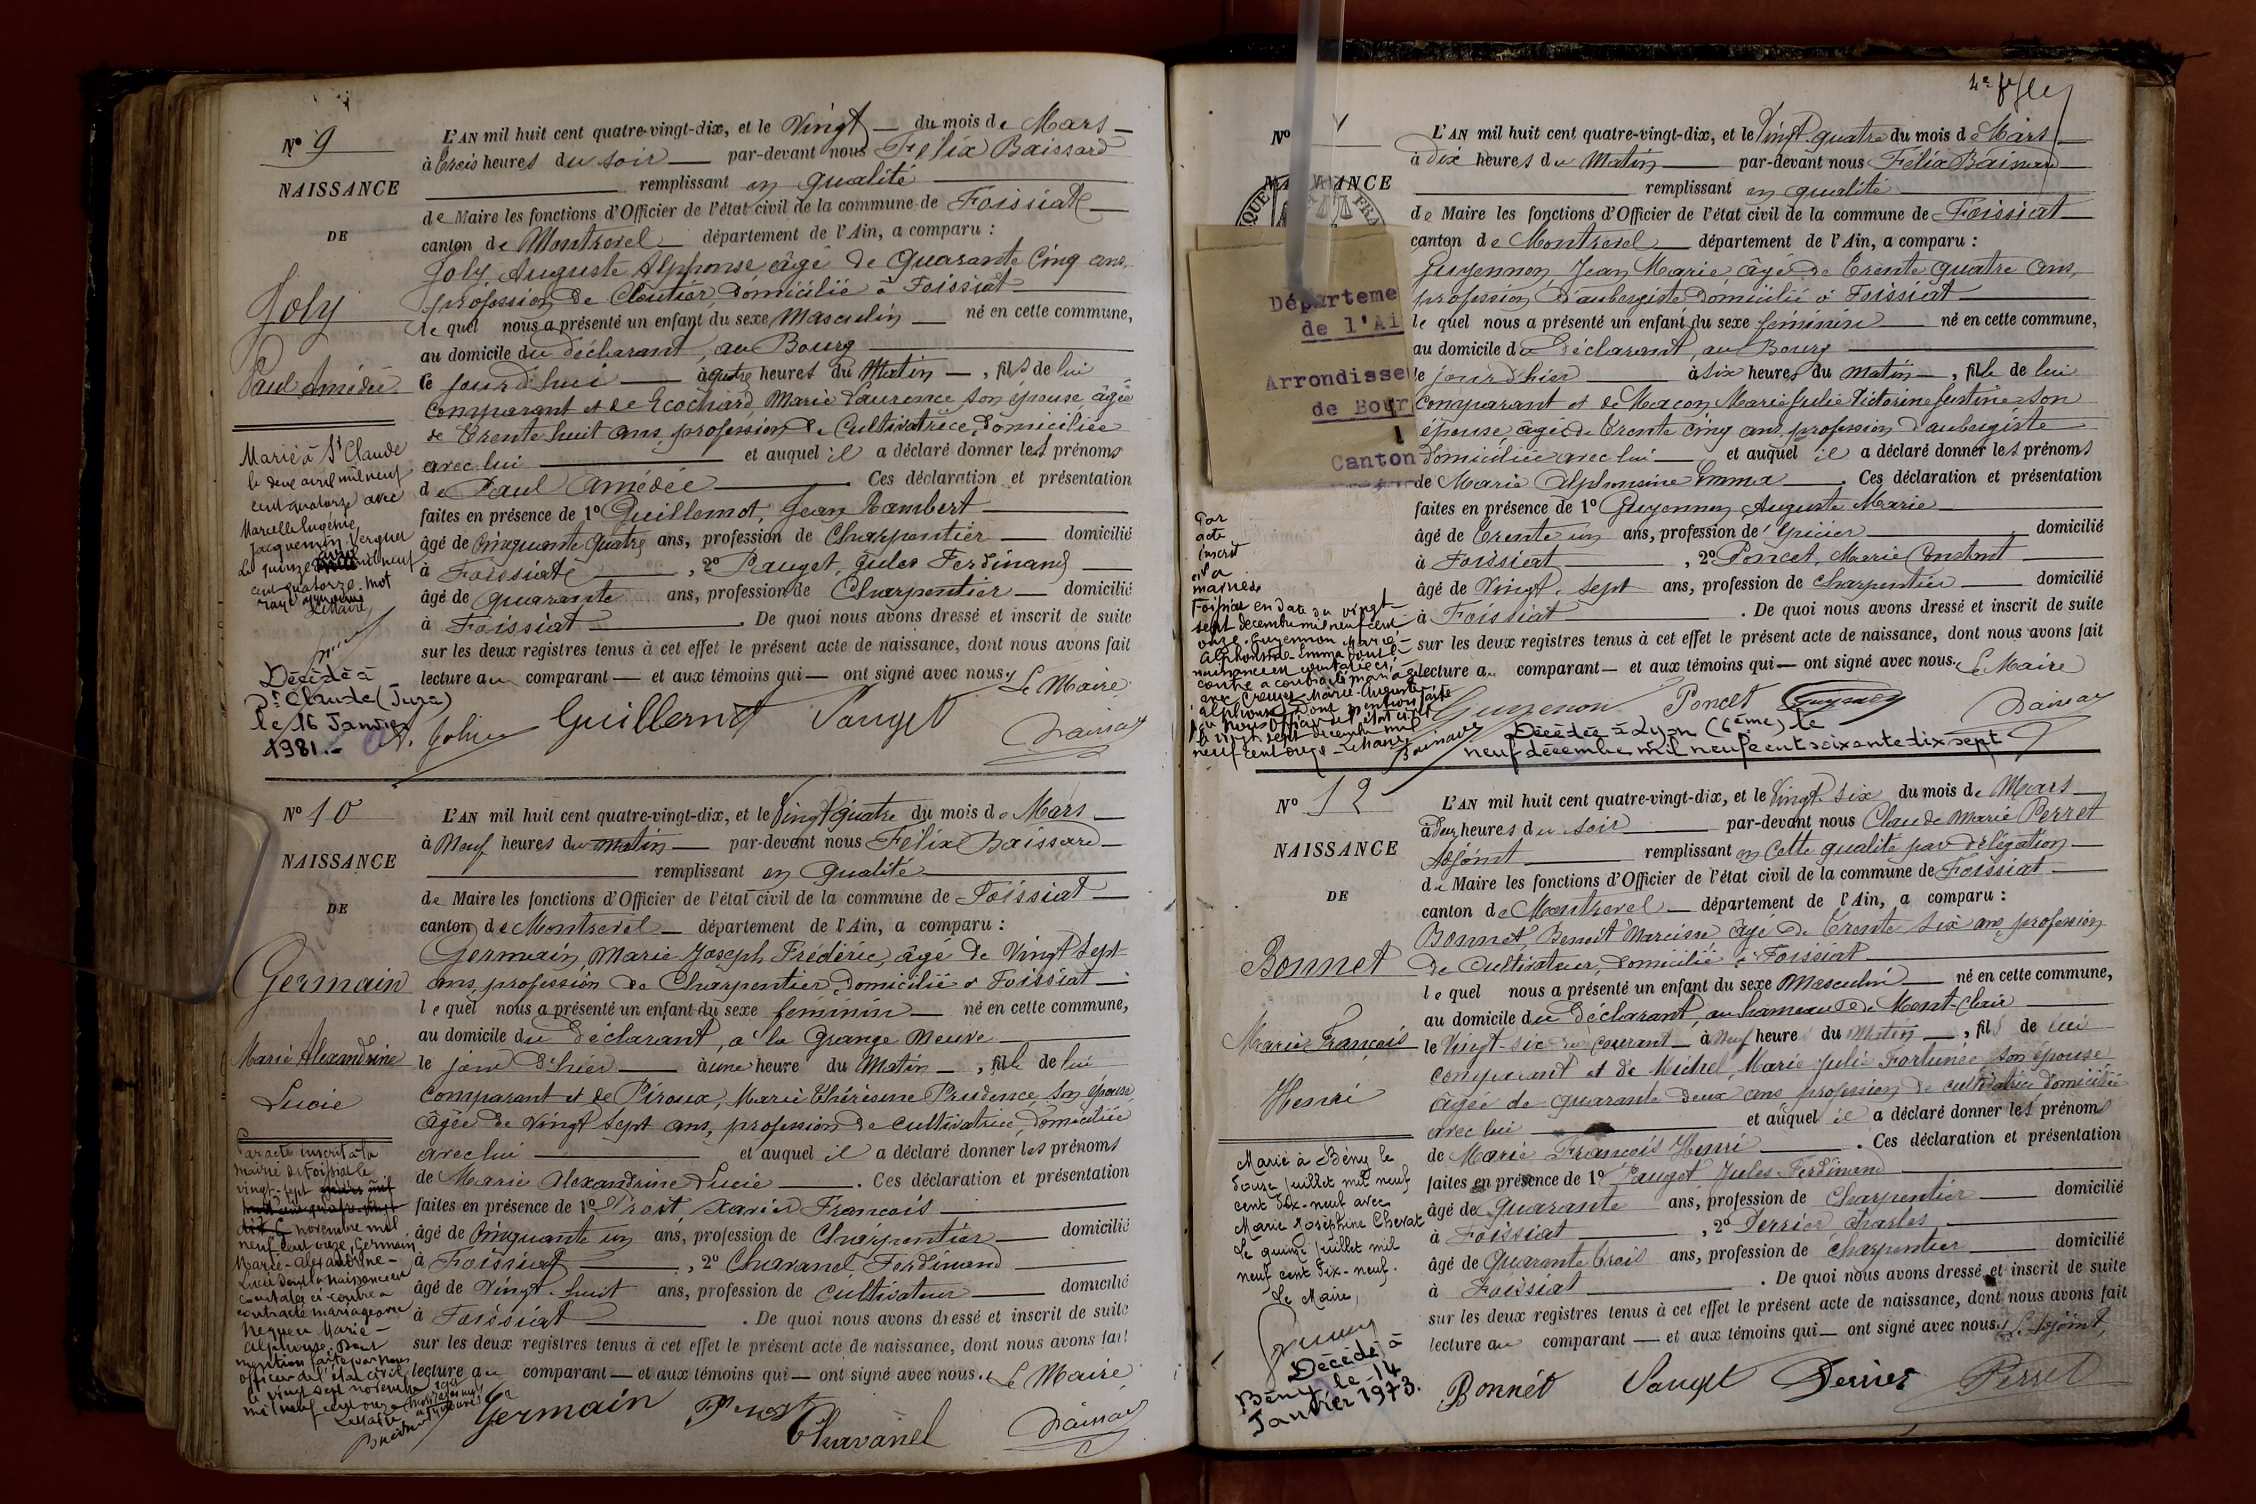 Nº 9
NAISSANCE
DE
Joly
Paul Amédée
Marié à St Claude
le deux avril mil neuf
cent quatorze avec
Marcelle Eugénie
Jacquemin-Verguet
Le quinze avril mil neuf
cent quatorze. mot
rayé
Le Maire
Décédé à
St Claude (Jura)
le 16 Janvier
1981.-
L'AN mil huit cent quatre-vingt-dix, et le Vingt du mois de Mars
à trois heures du soir par-devant nous Félix Baissard
remplissant en qualité
de Maire les fonctions d'Officier de l'état civil de la commune de Foissiat
canton de Montrevel département de l'Ain, a comparu :
Joly Auguste Alphonse, âgé de Quarante Cinq ans,
profession de Cloutier, domicilié à Foissiat
le quel nous a présenté un enfant du sexe Masculin né en cette commune,
au domicile du déclarant, au Bourg
le jourd'hui à quatre heures du Matin, fils de lui
Comparant et de Ecochard, Marie Laurence son épouse âgée
de Trente huit ans, profession de Cultivatrice, domiciliée
avec lui et auquel il a déclaré donner les prénoms
de Paul Amédée. Ces déclaration et présentation
faites en présence de 1º Guillemot, Jean Rambert
âgé de Cinquante Quatre ans, profession de Charpentier domicilié
à Foissiat, 2º Pauget, Jules Ferdinand
âgé de quarante ans, profession de Charpentier domicilié
à Foissiat. De quoi nous avons dressé et inscrit de suite
sur les deux registres tenus à cet effet le présent acte de naissance, dont nous avons fait
lecture au comparant et aux témoins qui ont signé avec nous, Le Maire
Guillemot Pauget
Nº 10
NAISSANCE
DE
Germain
Marie Alexandrine
Lucie
Par acte inscrit à la
mairie de Foissiat le
vingt-sept
novembre mil
neuf cent onze, Germain
Marie-Alexandrine-
Lucie dont la naissance est
constatée ci-contre a
contracté mariage avec
Marie-
Alphonse. Dont
mention faite par nous
officier de l'état civil
le vingt sept novembre
mil neuf cent onze
Le Maire
L'AN mil huit cent quatre-vingt-dix, et le Vingt quatre du mois de Mars
à Neuf heures du matin par-devant nous Félix Baissard
remplissant en qualité
de Maire les fonctions d'Officier de l'état civil de la commune de Foissiat
canton de Montrevel département de l'Ain, a comparu :
Germain, Marie Joseph Frédéric, âgé de Vingt Sept
ans, profession de Charpentier, domicilié à Foissiat
le quel nous a présenté un enfant du sexe féminin né en cette commune,
au domicile du déclarant, à la Grange Neuve
le jour d'hier à une heure du Matin, fille de lui
Comparant et de Piroux, Marie Thérésine Prudence, son épouse
âgée de Vingt Sept ans, profession de Cultivatrice, domiciliée
avec lui et auquel il a déclaré donner les prénoms
de Marie Alexandrine Lucie. Ces déclaration et présentation
faites en présence de 1º Prost Xavier François
âgé de Cinquante un ans, profession de Charpentier domicilié
à Foissiat, 2º Chavanel Ferdinand
âgé de Vingt-huit ans, profession de Cultivateur domicilié
à Foissiat. De quoi nous avons dressé et inscrit de suite
sur les deux registres tenus à cet effet le présent acte de naissance, dont nous avons fait
lecture au comparant et aux témoins qui ont signé avec nous. Le Maire
Germain Prost Chavanel
Nº
Départeme
de l'Ai
Arrondisse
de Bour
Canton
Par
acte
inscrit
à la
mairie de
Foissiat en date du vingt-
sept décembre mil neuf cent
onze, Guyennon Marie-
Alphonsine-Emma dont la
naissance est constatée ci-
contre a contracté mariage
avec Marie-Auguste
Alphonse. Dont mention faite
par nous officier de l'état civil
le vingt sept décembre mil
neuf cent onze - Le Maire
L'AN mil huit cent quatre-vingt-dix, et le Vingt-quatre du mois de Mars
à dix heures du Matin par-devant nous Félix Baissard
remplissant en qualité
de Maire les fonctions d'Officier de l'état civil de la commune de Foissiat
canton de Montrevel département de l'Ain, a comparu :
Guyennon, Jean Marie âgé de Trente quatre ans,
profession d'aubergiste domicilié à Foissiat
le quel nous a présenté un enfant du sexe féminin né en cette commune,
au domicile du Déclarant, au Bourg
le jour d'hier à six heures du matin, fille de lui
Comparant et de Macon, Marie Julie Victorine Justine son
épouse âgée de Trente cinq ans, profession d'aubergiste
domiciliée avec lui et auquel il a déclaré donner les prénoms
de Marie Alphonsine Emma. Ces déclaration et présentation
faites en présence de 1º Guyennon Auguste Marie
âgé de Trente un ans, profession de Epicier domicilié
à Foissiat, 2º Poncet, Marie Constant
âgé de Vingt-sept ans, profession de Charpentier domicilié
à Foissiat. De quoi nous avons dressé et inscrit de suite
sur les deux registres tenus à cet effet le présent acte de naissance, dont nous avons fait
lecture au comparant et aux témoins qui ont signé avec nous. Le Maire
Guyennon Poncet
Décédée à Lyon (6ème) le
neuf décembre mil neuf cent soixante dix sept
Nº 12
NAISSANCE
DE
Bonnet
Marie François
Henri
Marié à Bény le
douze juillet mil neuf
cent dix-neuf avec
Marie Joséphine Chevat
Le quinze juillet mil
neuf cent dix-neuf.
Le Maire,
Décédé à
Bény le 14
Janvier 1973.
L'AN mil huit cent quatre-vingt-dix, et le Vingt-six du mois de Mars
à Deux heures du soir par-devant nous Claude Marie Perret
Adjoint remplissant en Cette qualité par délégation
de Maire les fonctions d'Officier de l'état civil de la commune de Foissiat
canton de Montrevel département de l'Ain, a comparu :
Bonnet, Benoît Narcisse âgé de Trente six ans profession
de Cultivateur, domicilié à Foissiat
le quel nous a présenté un enfant du sexe Masculin né en cette commune,
au domicile du Déclarant, au hameau de Monat-Clair
le Vingt-six du Courant à Neuf heures du Matin, fils de lui
comparant et de Michel, Marie Julie Fortunée son épouse
âgée de quarante deux ans profession de cultivatrice domiciliée
avec lui et auquel il a déclaré donner les prénoms
de Marie François Henri. Ces déclaration et présentation
faites en présence de 1º Pauget Jules Ferdinand
âgé de Quarante ans, profession de Charpentier domicilié
à Foissiat, 2º Perrier Charles
âgé de Quarante trois ans, profession de Charpentier domicilié
à Foissiat. De quoi nous avons dressé et inscrit de suite
sur les deux registres tenus à cet effet le présent acte de naissance, dont nous avons fait
lecture au comparant et aux témoins qui ont signé avec nous. L'Adjoint,
Bonnet Pauget Perrier Perret